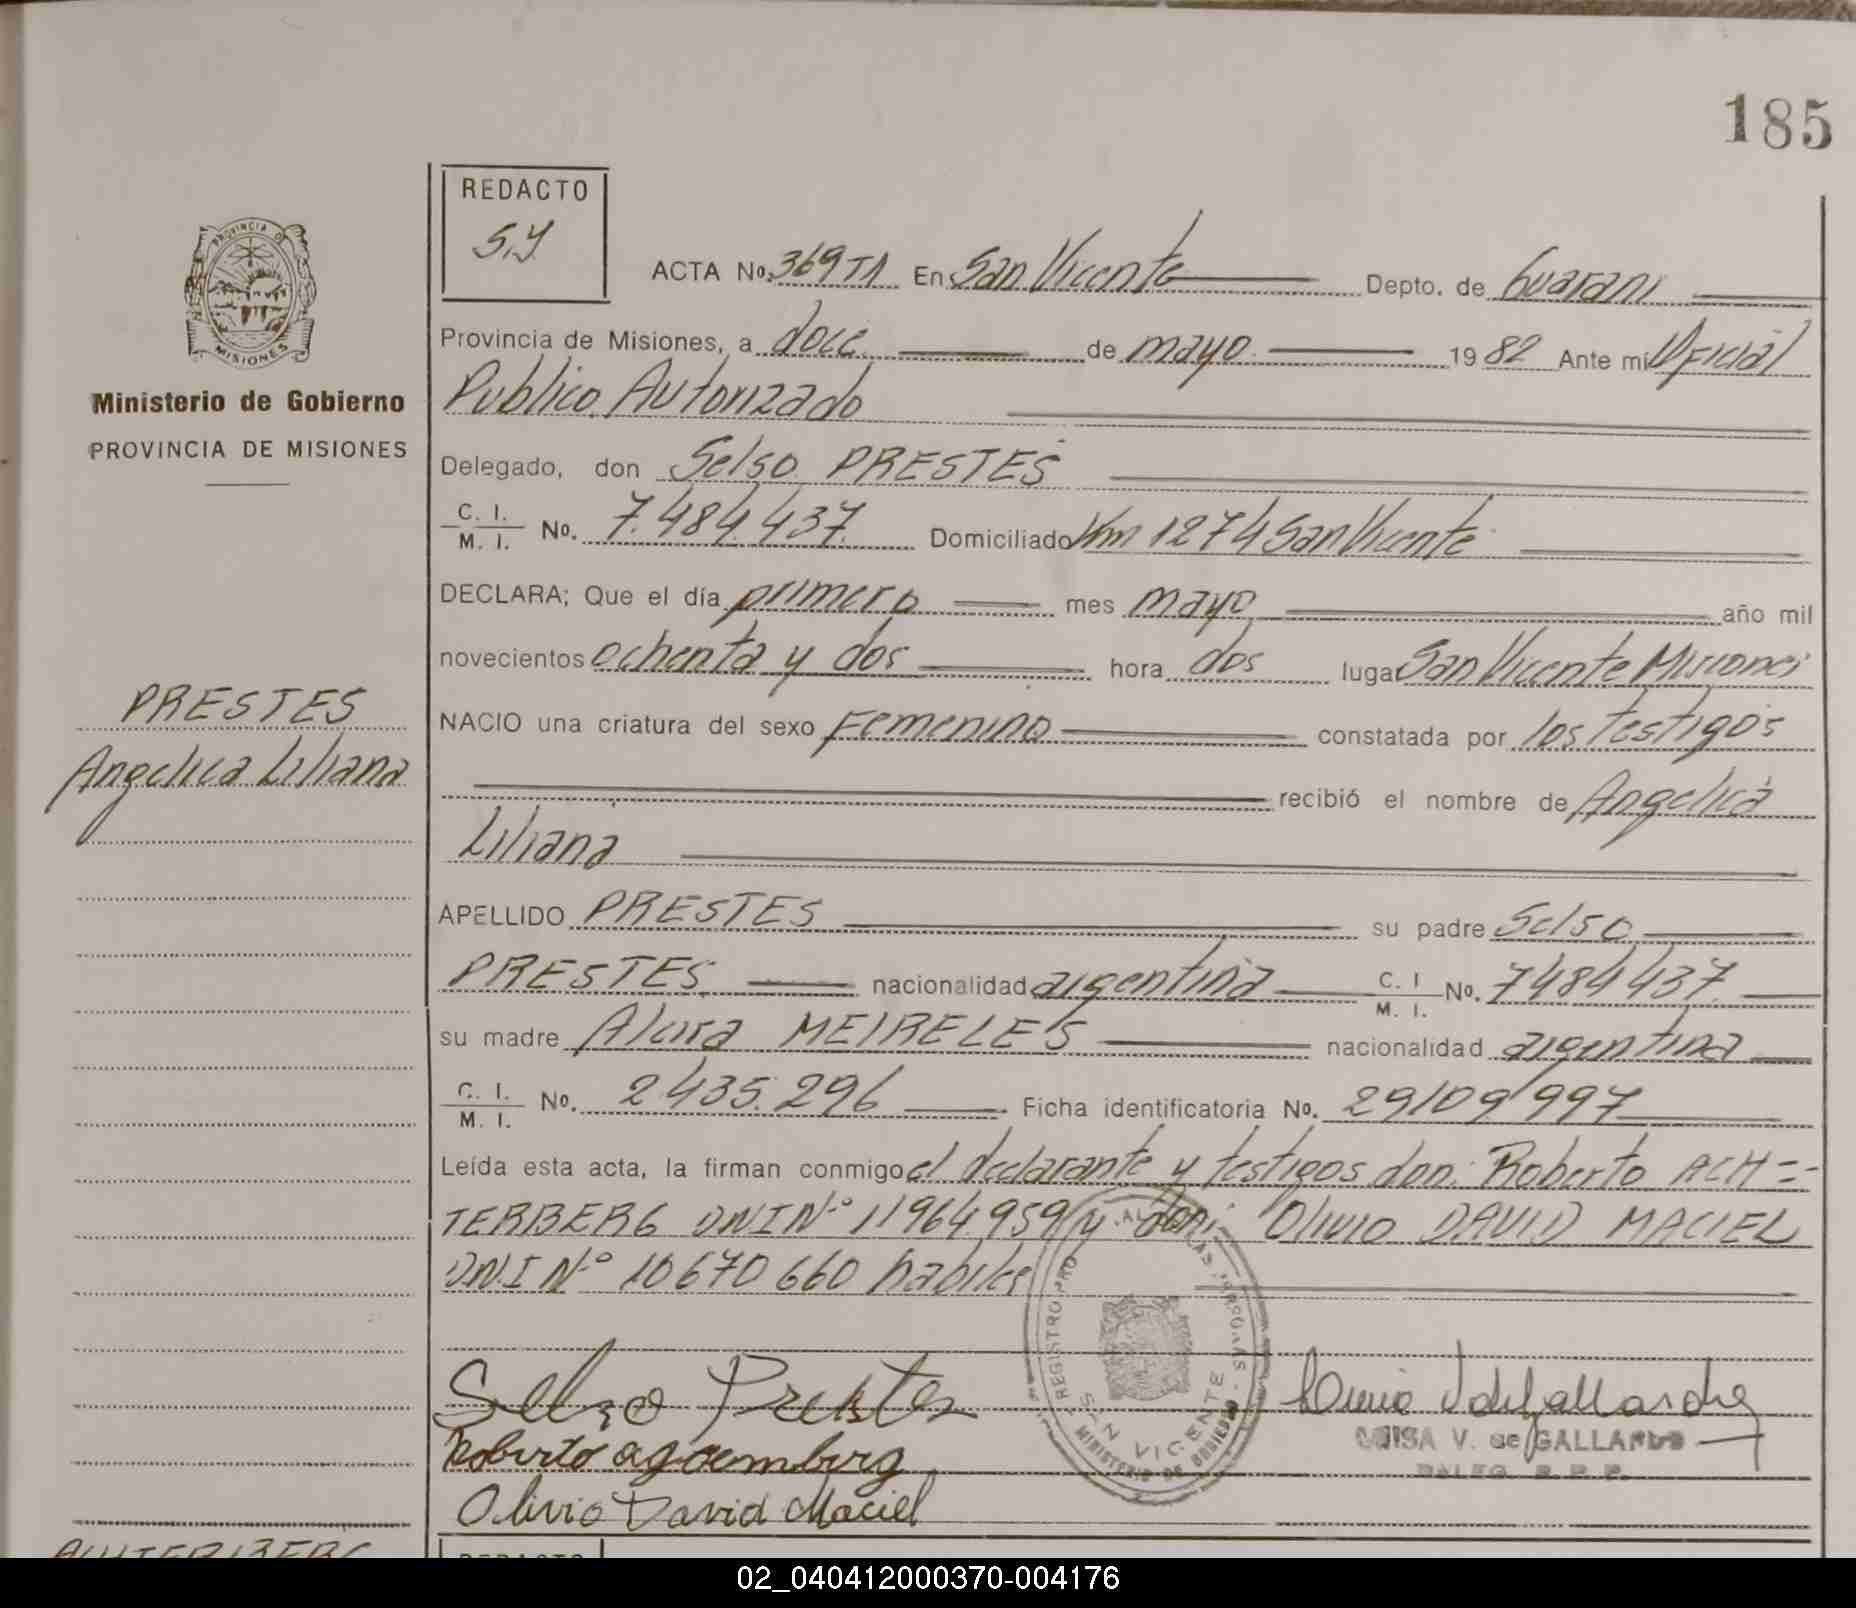 185
REDACTO
S.Y
PROVINCIA DE
MISIONES
Ministerio de Gobierno
PROVINCIA DE MISIONES
PRESTES
Angelica Liliana
ACTA No. 369 TA En San Vicente Depto. de Guarani
Provincia de Misiones, a doce de mayo 1982 Ante mí Oficial
Publico Autorizado
Delegado, don Selso PRESTES
C. I. M. I. No. 7.484.437. Domiciliado Km 1274 San Vicente
DECLARA; Que el día primero mes mayo año mil
novecientos ochenta y dos hora dos lugar San Vicente Misiones
NACIO una criatura del sexo Femenino constatada por los testigos
recibió el nombre de Angelica
Liliana
APELLIDO PRESTES su padre Selso
PRESTES nacionalidad argentina C. I M. I. No. 7484437
su madre MEIRELES nacionalidad argentina
C. I. M. I. No. 2435.296 Ficha identificatoria No. 29/09/997
Leída esta acta, la firman conmigo el declarante y testigos don: Roberto ACH=
TERBERG DNI Nº 11964959 y don: Olivio DAVID MACIEL
DNI Nº 10670660 habiles
REGISTRO PRO
SAN VICENTE
MINISTERIO DE GOBIERNO
Selzo Prestes
Roberto
Olivio David Maciel
LUISA V. de GALLARDO
REDACTO
02_040412000370-004176